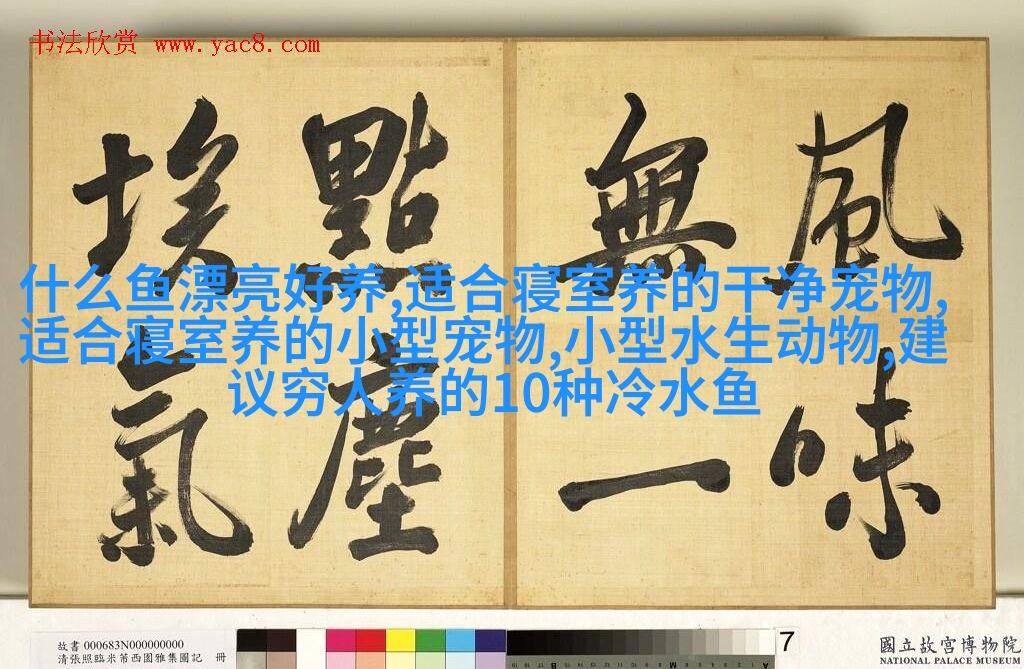 书法欣赏 www.yac8.com
風味
無一
點塵
埃氣
什么鱼漂亮好养,适合寝室养的干净宠物,
适合寝室养的小型宠物,小型水生动物,建
议穷人养的10种冷水鱼
故書 000683N000000000
清張照臨米芾西園雅集圖記 冊
7
國立故宮博物院
NATIONAL PALACE MUSEUM